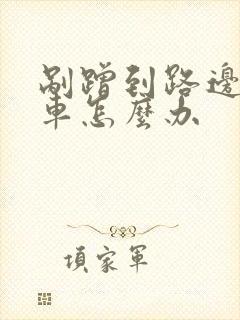 剐蹭到路邊
車怎麽办
項家軍